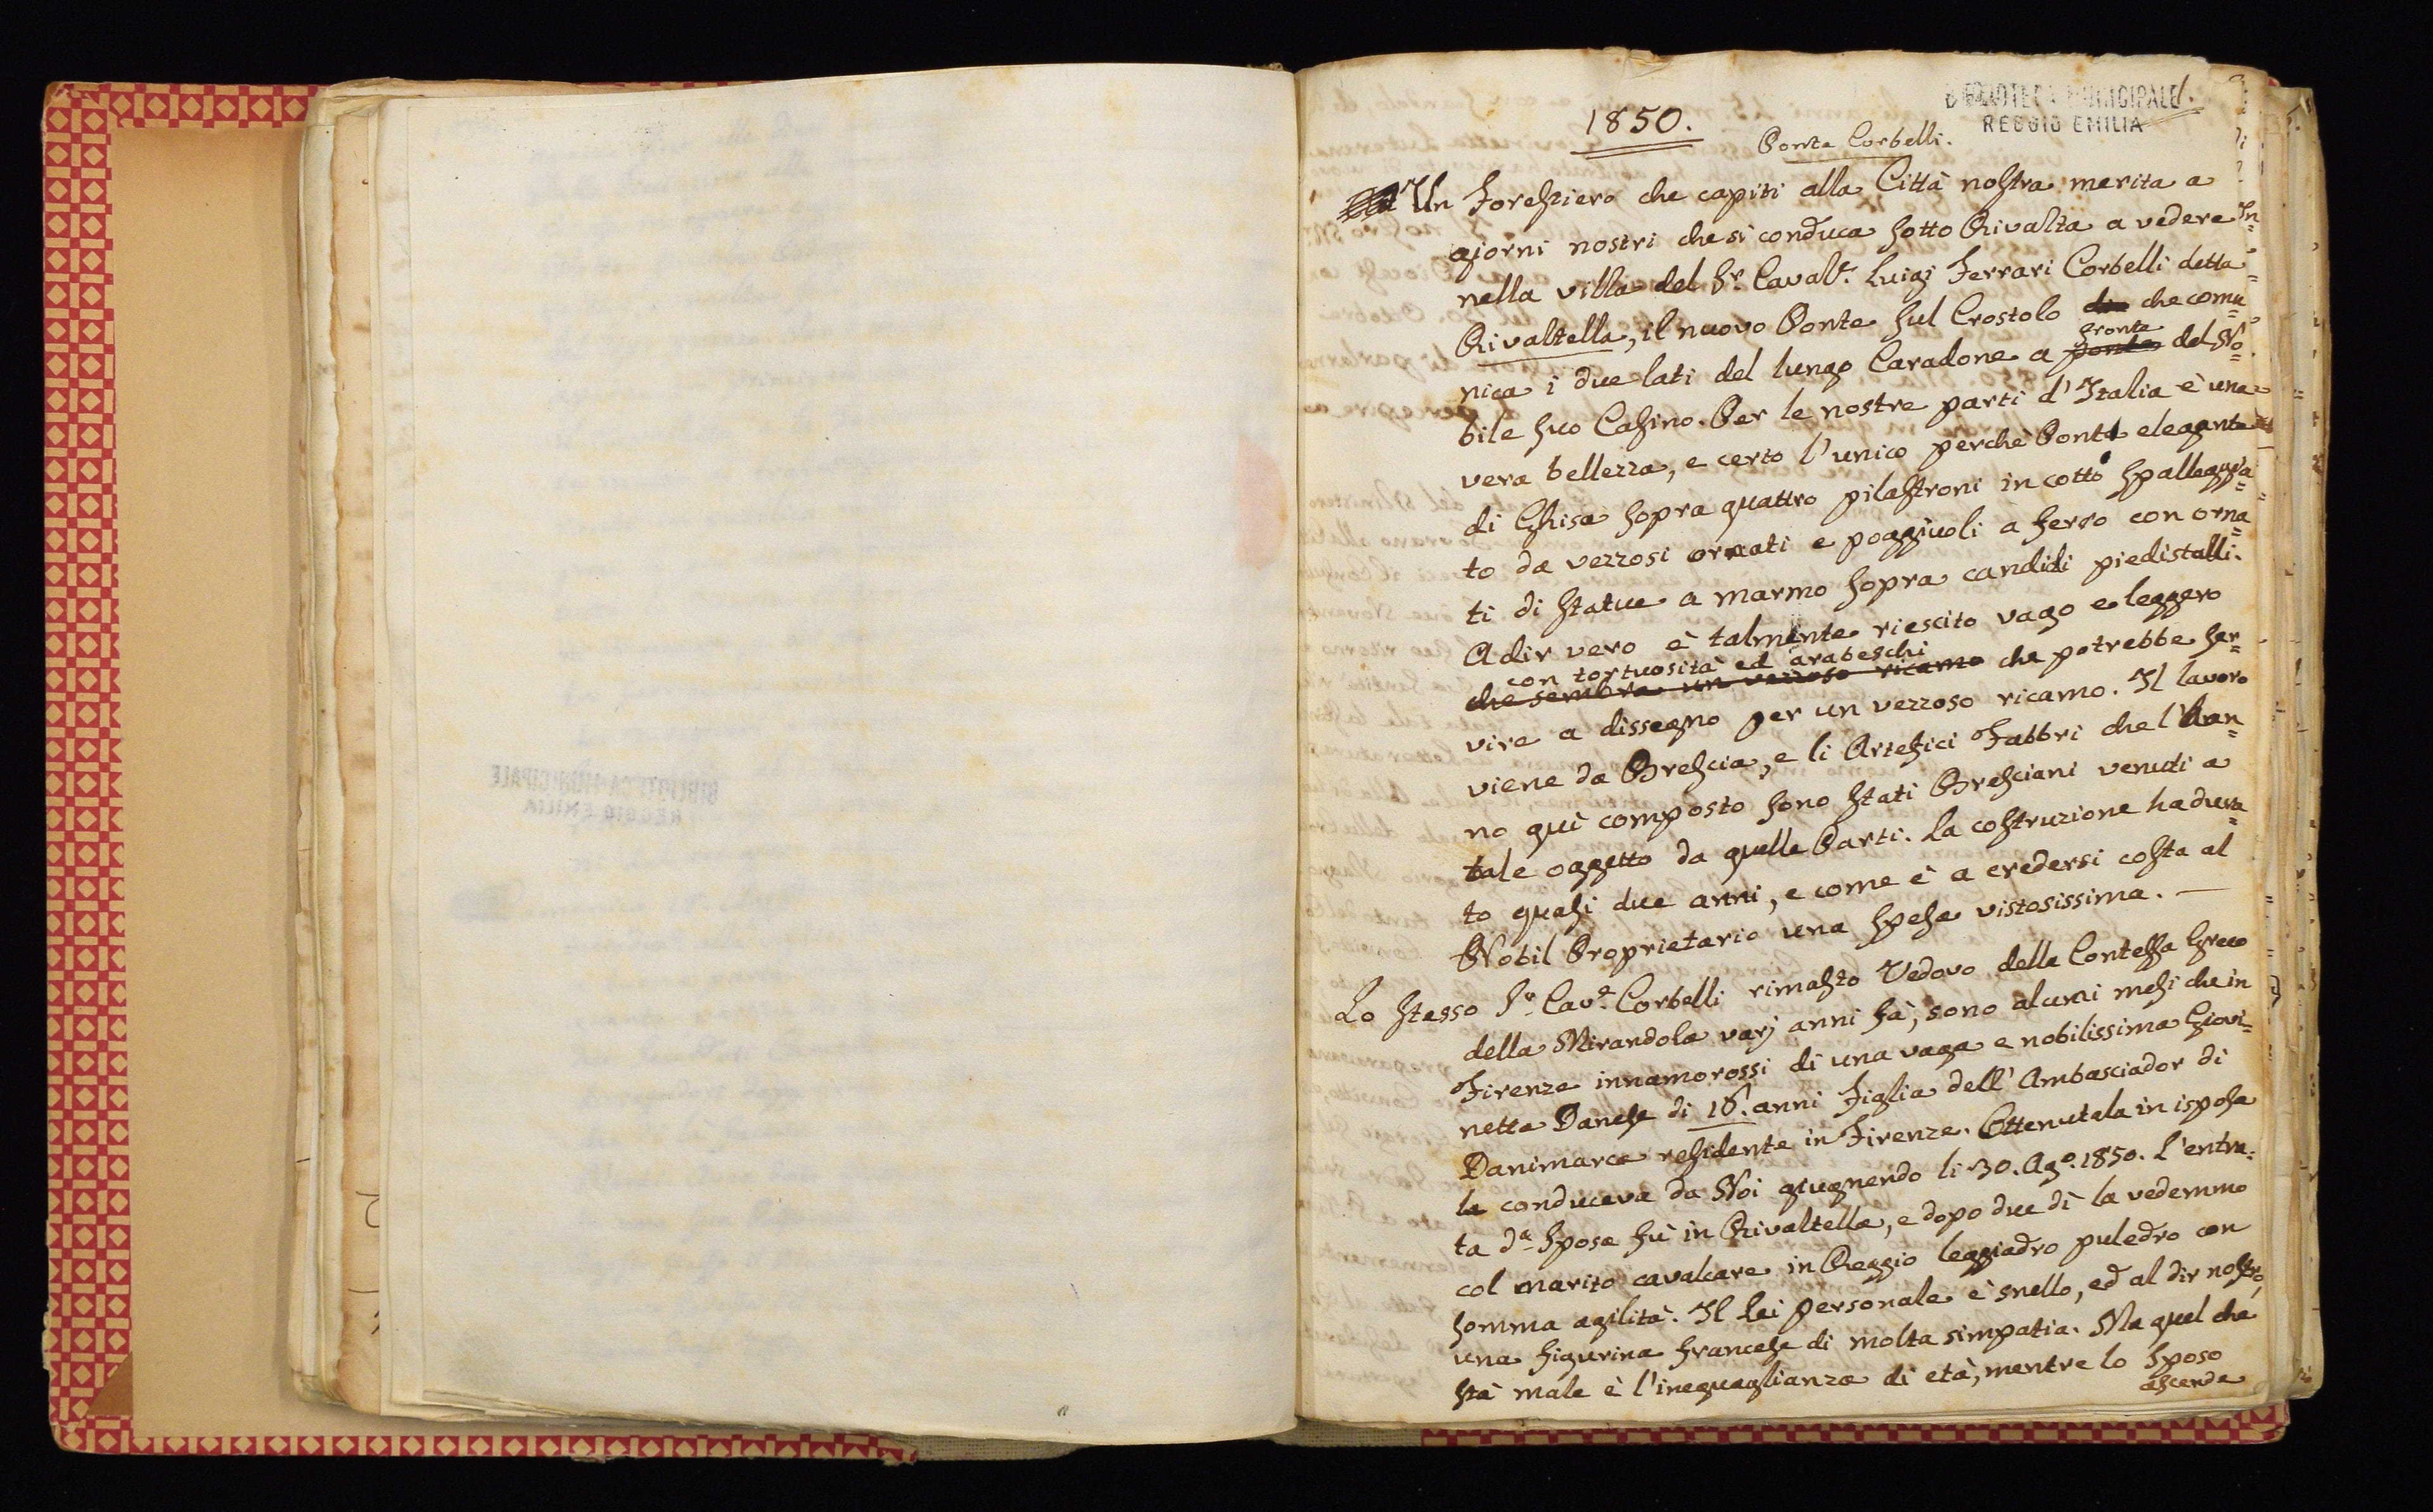 1850.
BIBLIOTECA MUNICIPALE
REGGIO EMILIA
1.
Ponte Corbelli.
Un Forestiero che capiti alla Città nostra merita a
giorni nostri che si conduca sotto Rivalta a vedere
nella villa del Sr. Cavale. Luigi Ferrari Corbelli detta
Rivaltella, il nuovo Ponte sul Crostolo che comu=
nica i due lati del lungo Caradone a ponte fronte del No=
bile suo Casino. Per le nostre parti d'Italia è una
vera bellezza, e certo l'unico perchè Ponte elegante
di Ghisa sopra quattro pilastroni in cotto spalleggia=
to da vezzosi ornati e poggiuoli a ferro con orna=
ti di statue a marmo sopra candidi piedistalli.
A dir vero è talmente riescito vago e leggero
con tortuosità ed arabeschi
che sembra un vezzoso ricamo che potrebbe ser=
vire a dissegno per un vezzoso ricamo. Il lavoro
viene da Brescia, e li Artefici Fabbri che l'han=
no quì composto sono stati Bresciani venuti a
tale oggetto da quelle Parti. La costruzione ha dura=
to quasi due anni, e come è a credersi costa al
Nobil Proprietario una spesa vistosissima. —
Lo stesso Sr. Cave. Corbelli rimasto Vedovo della Contessa Greco
della Mirandola varj anni fà, sono alcuni mesi che in
Firenze innamorossi di una vaga e nobilissima Giovi=
netta Danese di 16. anni Figlia dell'Ambasciador di
Danimarca residente in Firenze. Ottenutala in isposa
la conduceva da Noi giugnendo li 30. Ago. 1850. L'entra=
ta da. Sposa fù in Rivaltella, e dopo due dì la vedemmo
col marito cavalcare in Reggio leggiadro puledro con
somma agilità. Il Lei personale è snello, ed al dir nostro,
una figurina francese di molta simpatia. Ma quel che
stà male è l'ineguaglianza di età, mentre lo Sposo
ascende